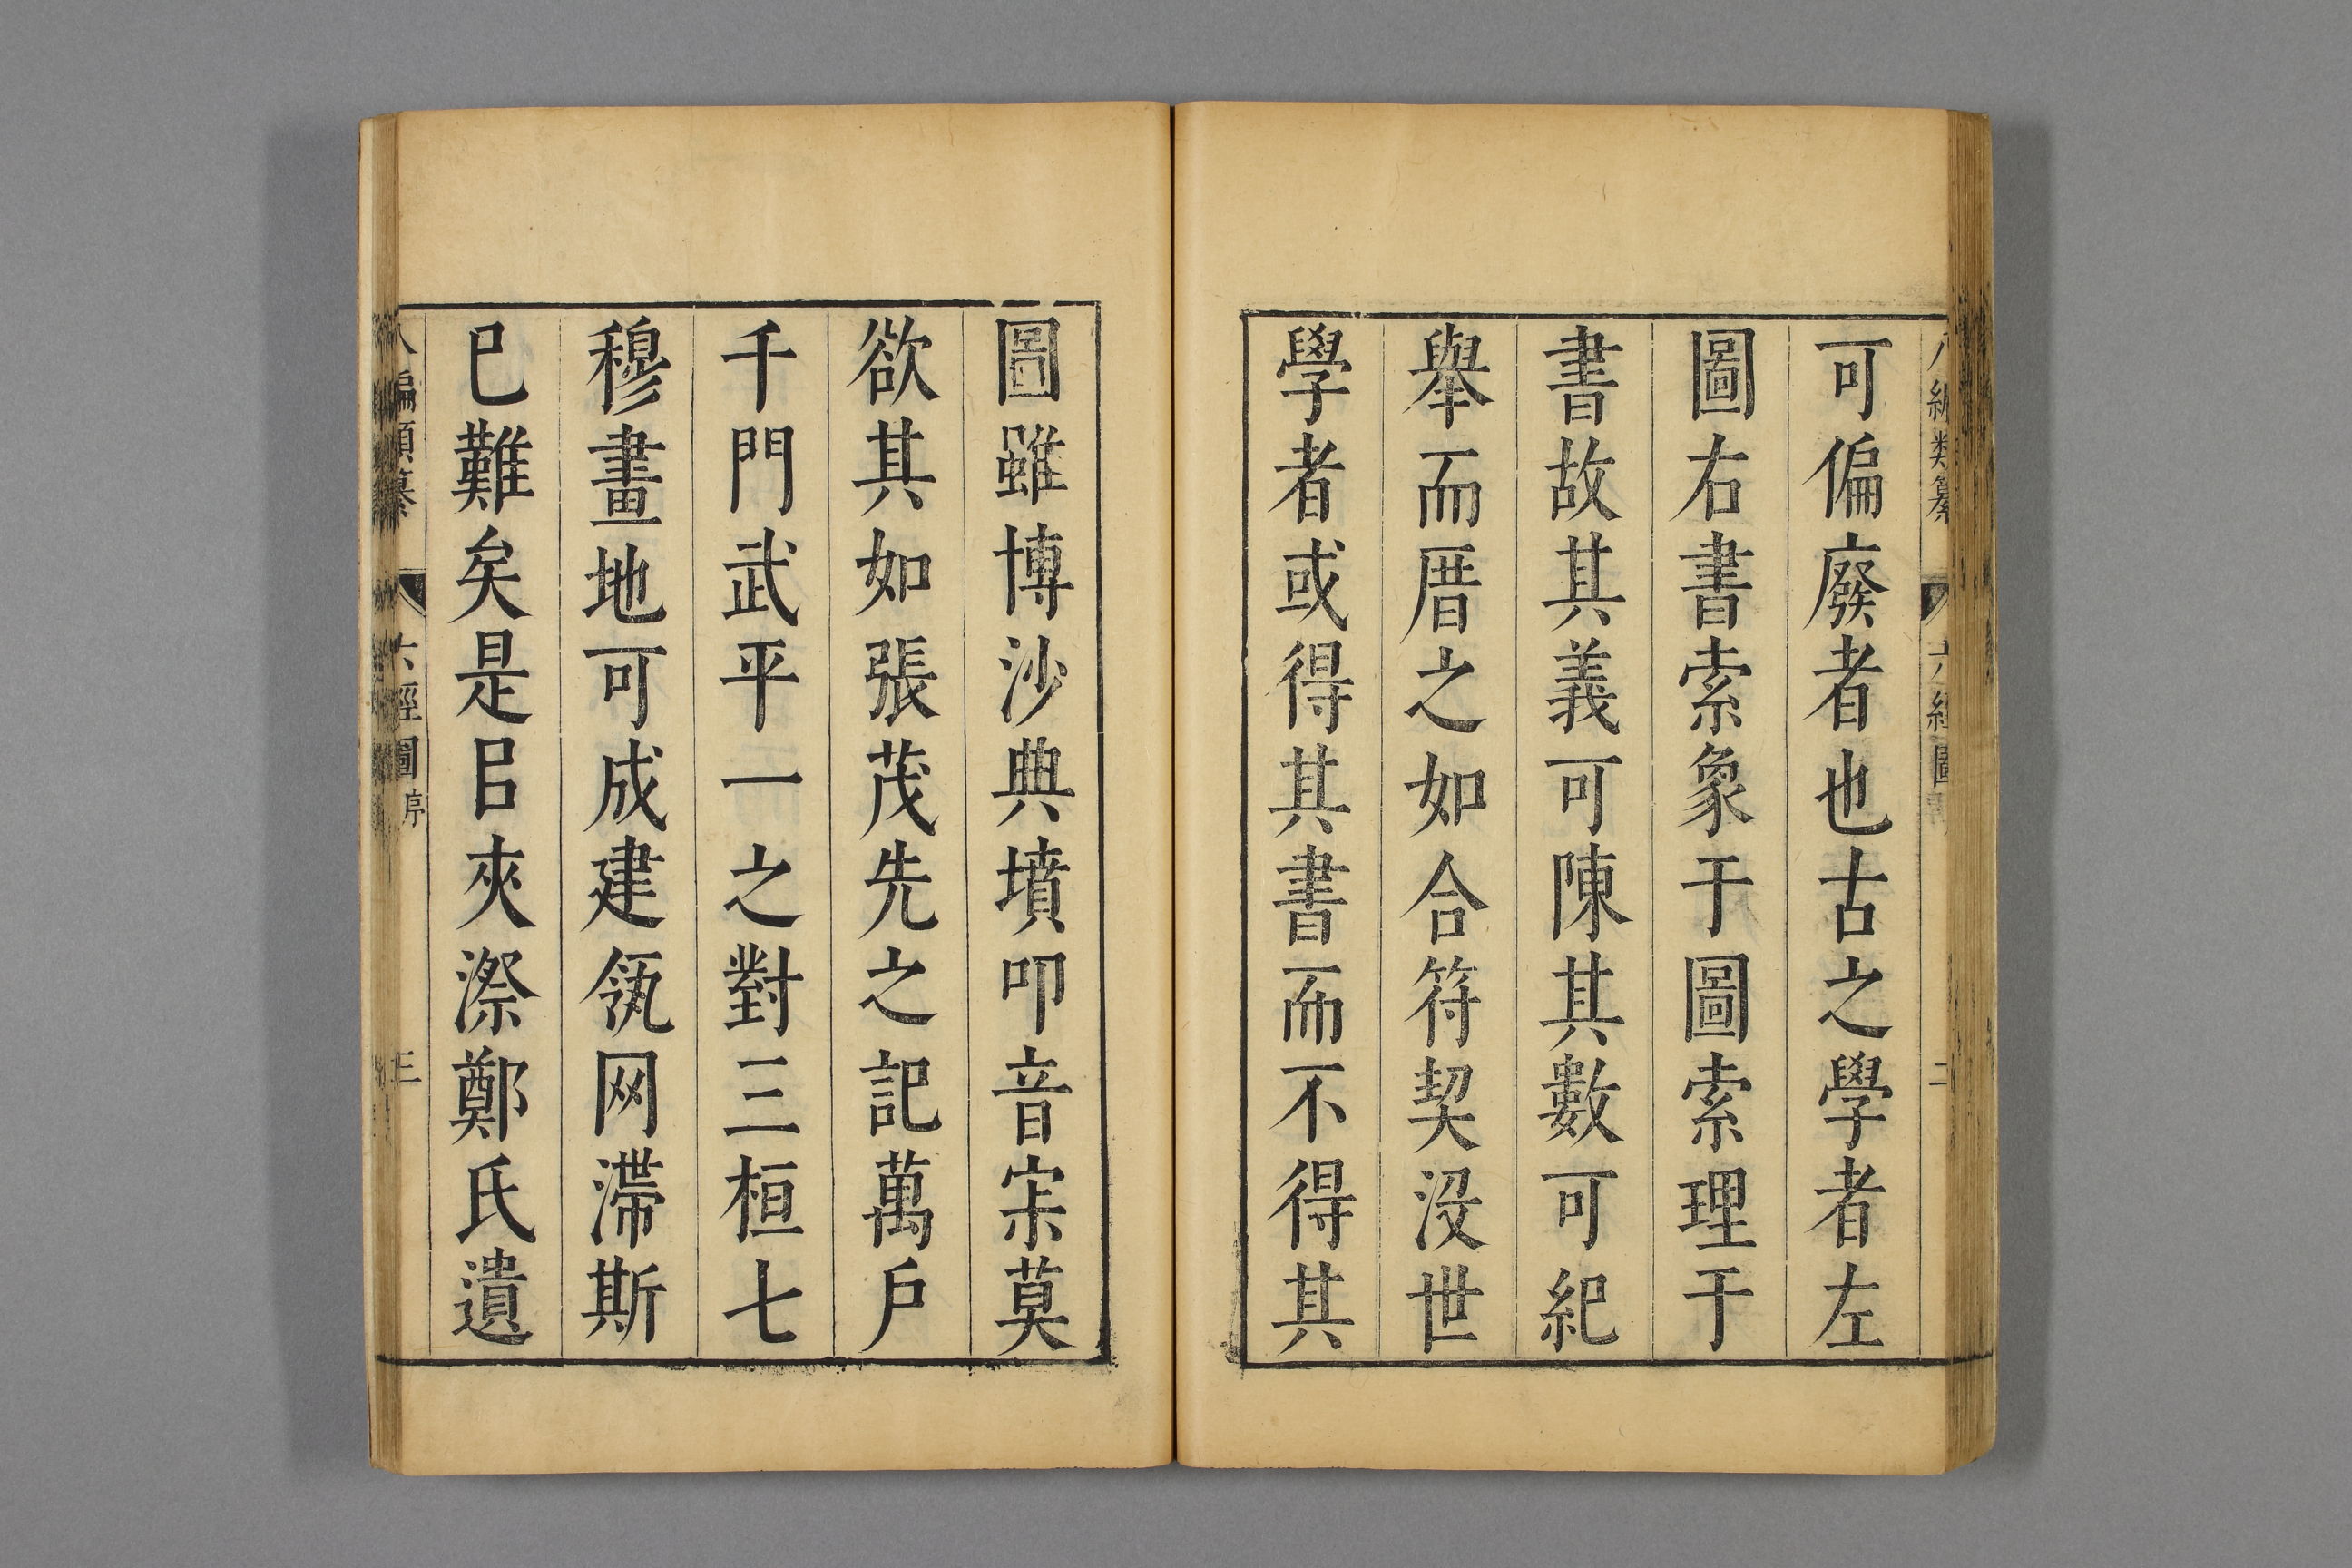 八編類纂 六經圖 二
可偏廢者也古之學者左
圖右書索象于圖索理于
書故其義可陳其數可紀
舉而厝之如合符契没世
學者或得其書而不得其
圖雖博沙典墳叩音寀莫
欲其如張茂先之記萬戶
千門武平一之對三桓七
穆畫地可成建瓴网滯斯
已難矣是㠯夾漈鄭氏遺
八編類纂 六經圖序 三